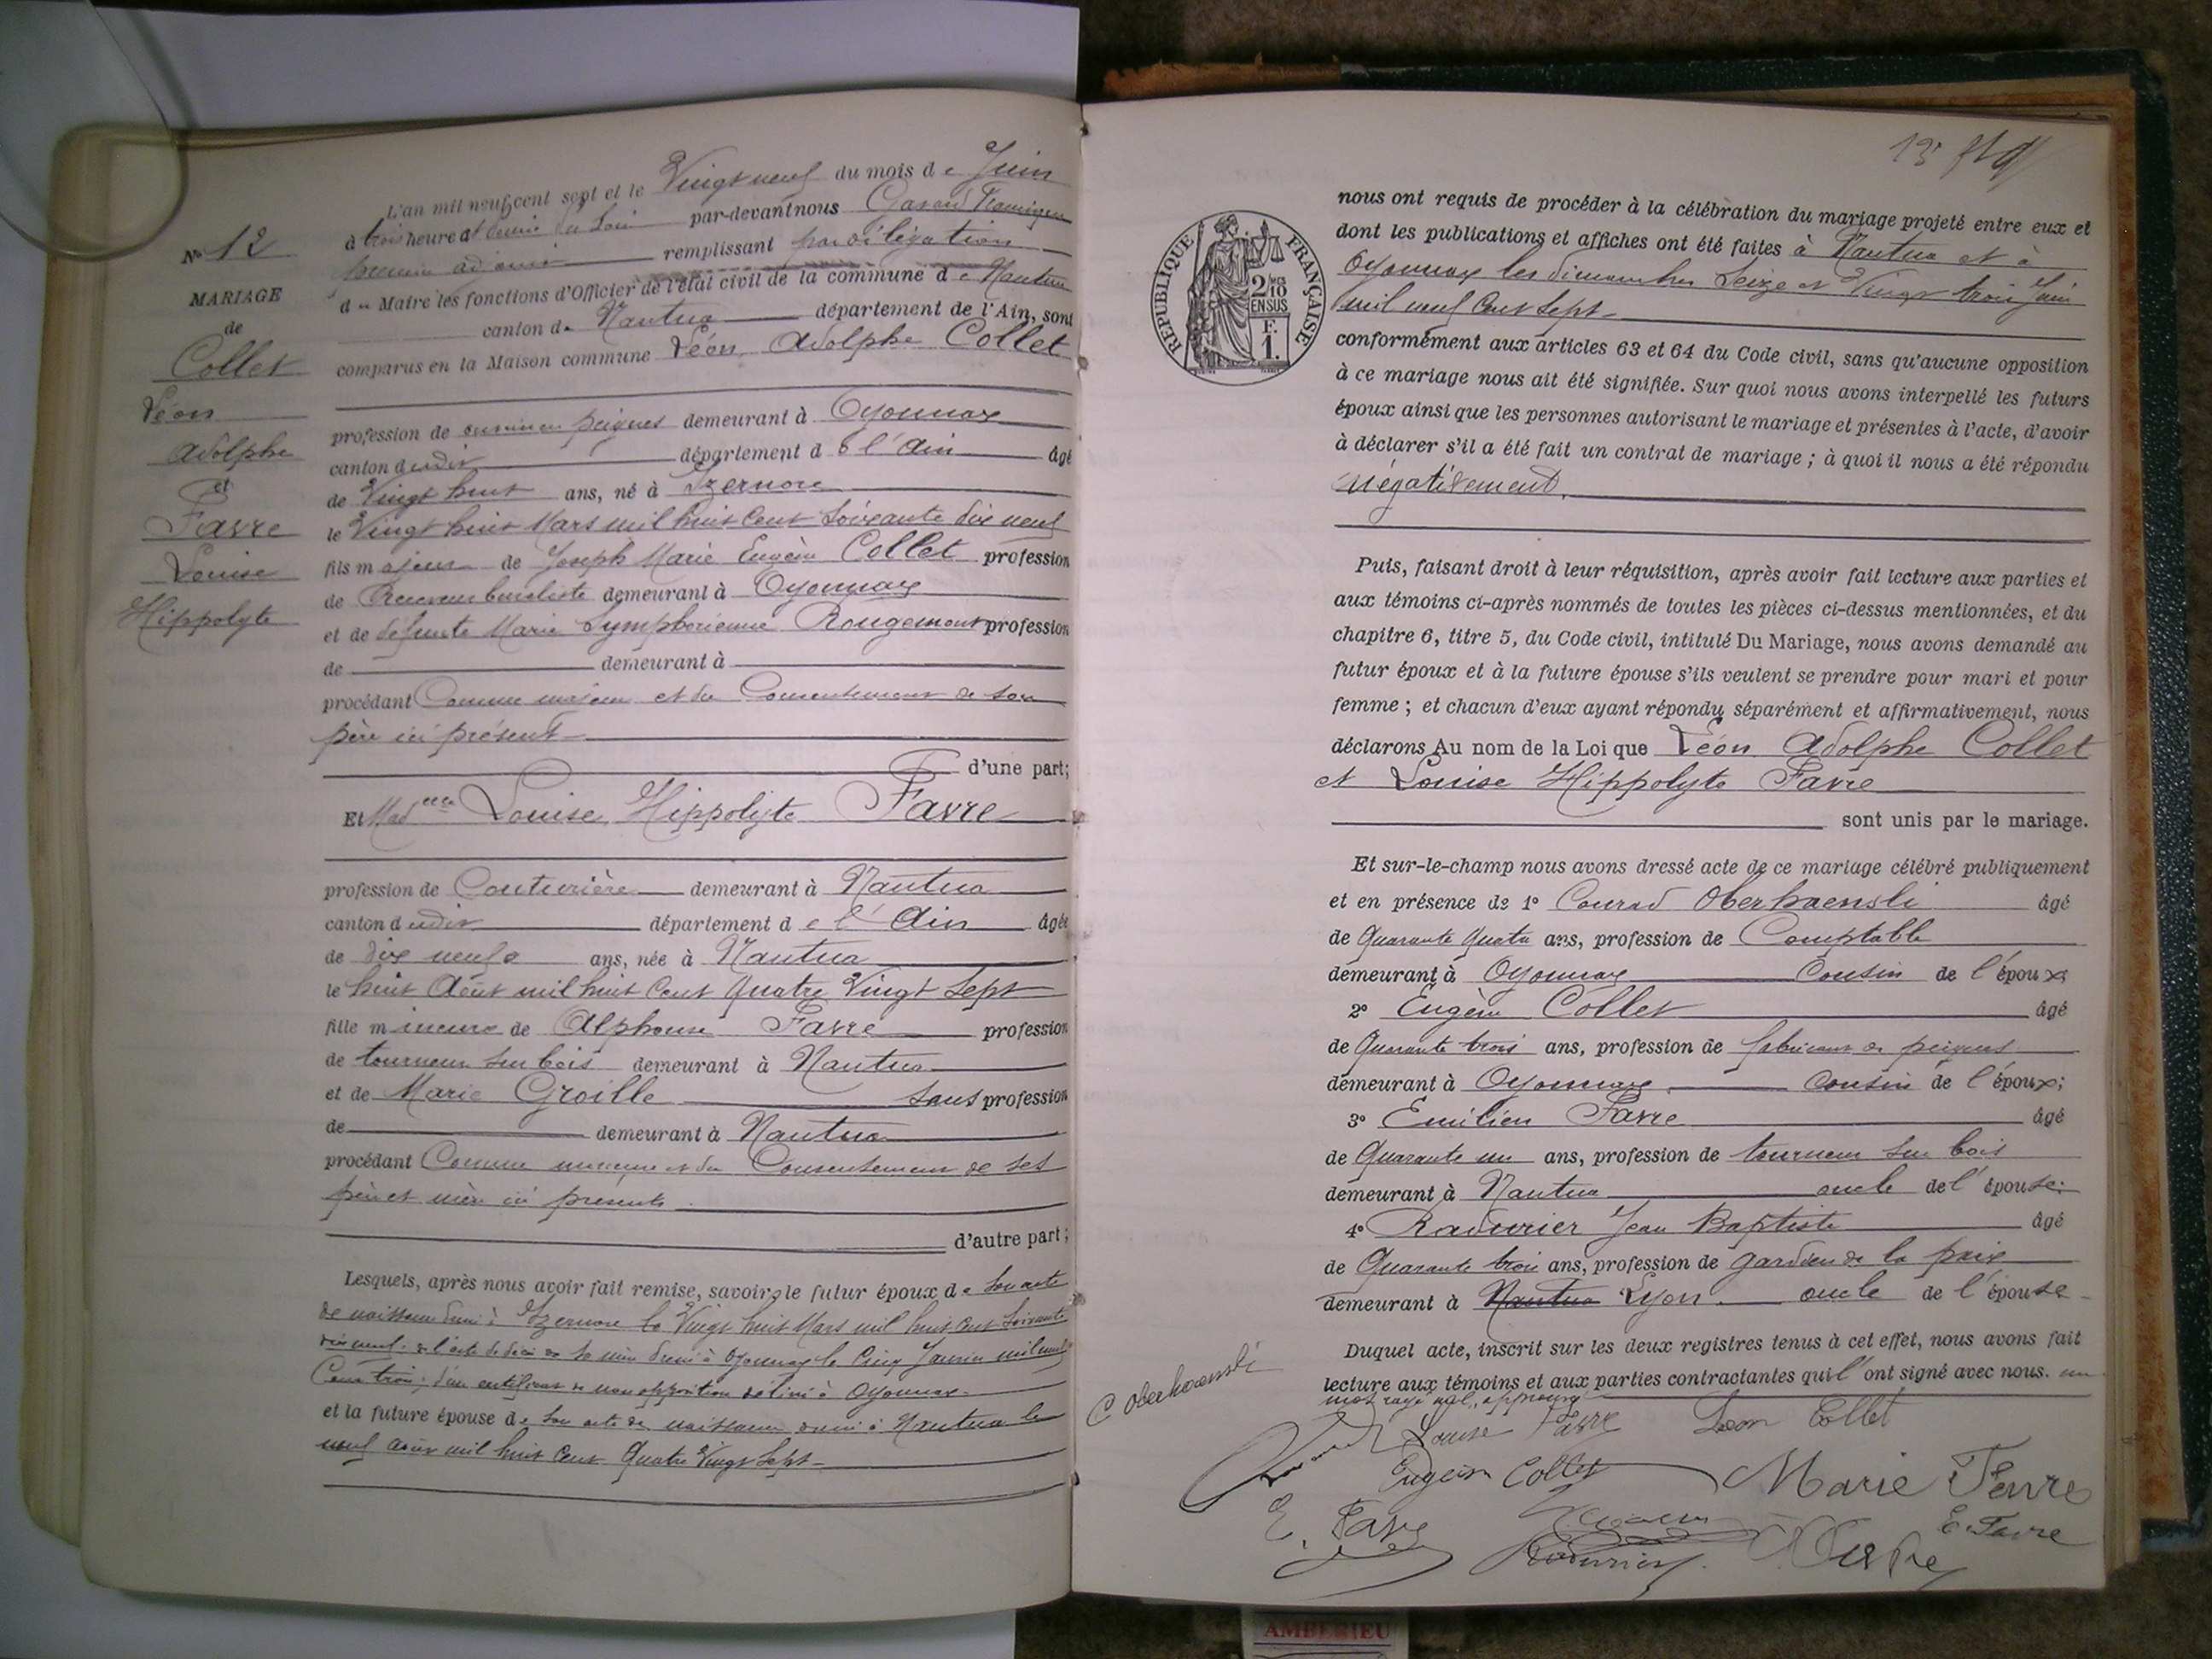 L'an mil neuf cent sept et le Vingt neuf du mois de Juin
à trois heure et demie du Soir par-devant nous
premier adjoint remplissant par délégation
du Maire les fonctions d'Officier de l'état civil de la commune de Nantua
canton de Nantua département de l'Ain, sont
comparus en la Maison commune Léon Adolphe Collet
profession de peignes demeurant à Oyonnax
canton dudit département de l'Ain âgé
de Vingt huit ans, né à Izernore
le Vingt huit Mars mil huit Cent Soixante dix neuf
fils majeur de Joseph Marie Eugène Collet profession
de Receveur buraliste demeurant à Oyonnax
et de défunte Marie Symphorienne Rougemont profession
de demeurant à
procédant Comme majeur et du Consentement de son
père ici présent
d'une part;
Et Mad elle Louise Hippolyte Favre
profession de Couturière demeurant à Nantua
canton dudit département de l'Ain âgée
de dix neuf ans, née à Nantua
le huit Août mil huit Cent Quatre Vingt Sept
fille mineure de Alphonse Favre profession
de tourneur sur bois demeurant à Nantua
et de Marie Groille Sans profession
de demeurant à Nantua
procédant Comme mineure et du Consentement de ses
père et mère ici présents
d'autre part;
Lesquels, après nous avoir fait remise, savoir: le futur époux de son acte
de naissance dressé à Izernore le Vingt huit Mars mil huit Cent Soixante
dix neuf, de l'acte de décès de sa mère dressé à Oyonnax le Cinq Janvier mil neuf
Cent trois; d'un certificat de non opposition délivré à Oyonnax
et la future épouse de son acte de naissance dressé à Nantua le
neuf août mil huit Cent Quatre Vingt Sept
No 12
MARIAGE
de
Collet
Léon
Adolphe
et
Favre
Louise
Hippolyte
13
RÉPUBLIQUE FRANÇAISE
2/10
EN SUS
F.
1.
nous ont requis de procéder à la célébration du mariage projeté entre eux et
dont les publications et affiches ont été faites à Nantua et à
Oyonnax les dimanches Seize et Vingt trois Juin
mil neuf Cent Sept
conformément aux articles 63 et 64 du Code civil, sans qu'aucune opposition
à ce mariage nous ait été signifiée. Sur quoi nous avons interpellé les futurs
époux ainsi que les personnes autorisant le mariage et présentes à l'acte, d'avoir
à déclarer s'il a été fait un contrat de mariage; à quoi il nous a été répondu
négativement.
Puis, faisant droit à leur réquisition, après avoir fait lecture aux parties et
aux témoins ci-après nommés de toutes les pièces ci-dessus mentionnées, et du
chapitre 6, titre 5, du Code civil, intitulé Du Mariage, nous avons demandé au
futur époux et à la future épouse s'ils veulent se prendre pour mari et pour
femme; et chacun d'eux ayant répondu séparément et affirmativement, nous
déclarons Au nom de la Loi que Léon Adolphe Collet
et Louise Hippolyte Favre
sont unis par le mariage.
Et sur-le-champ nous avons dressé acte de ce mariage célébré publiquement
et en présence de 1° Conrad Oberhaensli âgé
de Quarante Quatre ans, profession de Comptable
demeurant à Oyonnax Cousin de l'époux;
2° Eugène Collet âgé
de Quarante trois ans, profession de fabricant de peignes
demeurant à Oyonnax Cousin de l'époux;
3° Emilien Favre âgé
de Quarante un ans, profession de tourneur sur bois
demeurant à Nantua oncle de l'épouse;
4° Radurier Jean Baptiste âgé
de Quarante trois ans, profession de gardien de la paix
demeurant à Nantua Lyon oncle de l'épouse
Duquel acte, inscrit sur les deux registres tenus à cet effet, nous avons fait
lecture aux témoins et aux parties contractantes qui l'ont signé avec nous. un
mot rayé nul, approuvé
C Oberhaensli
Louise Favre Léon Collet
Eugène Collet Marie Favre
E. Favre
Radurier
E. Favre
AMBERIEU